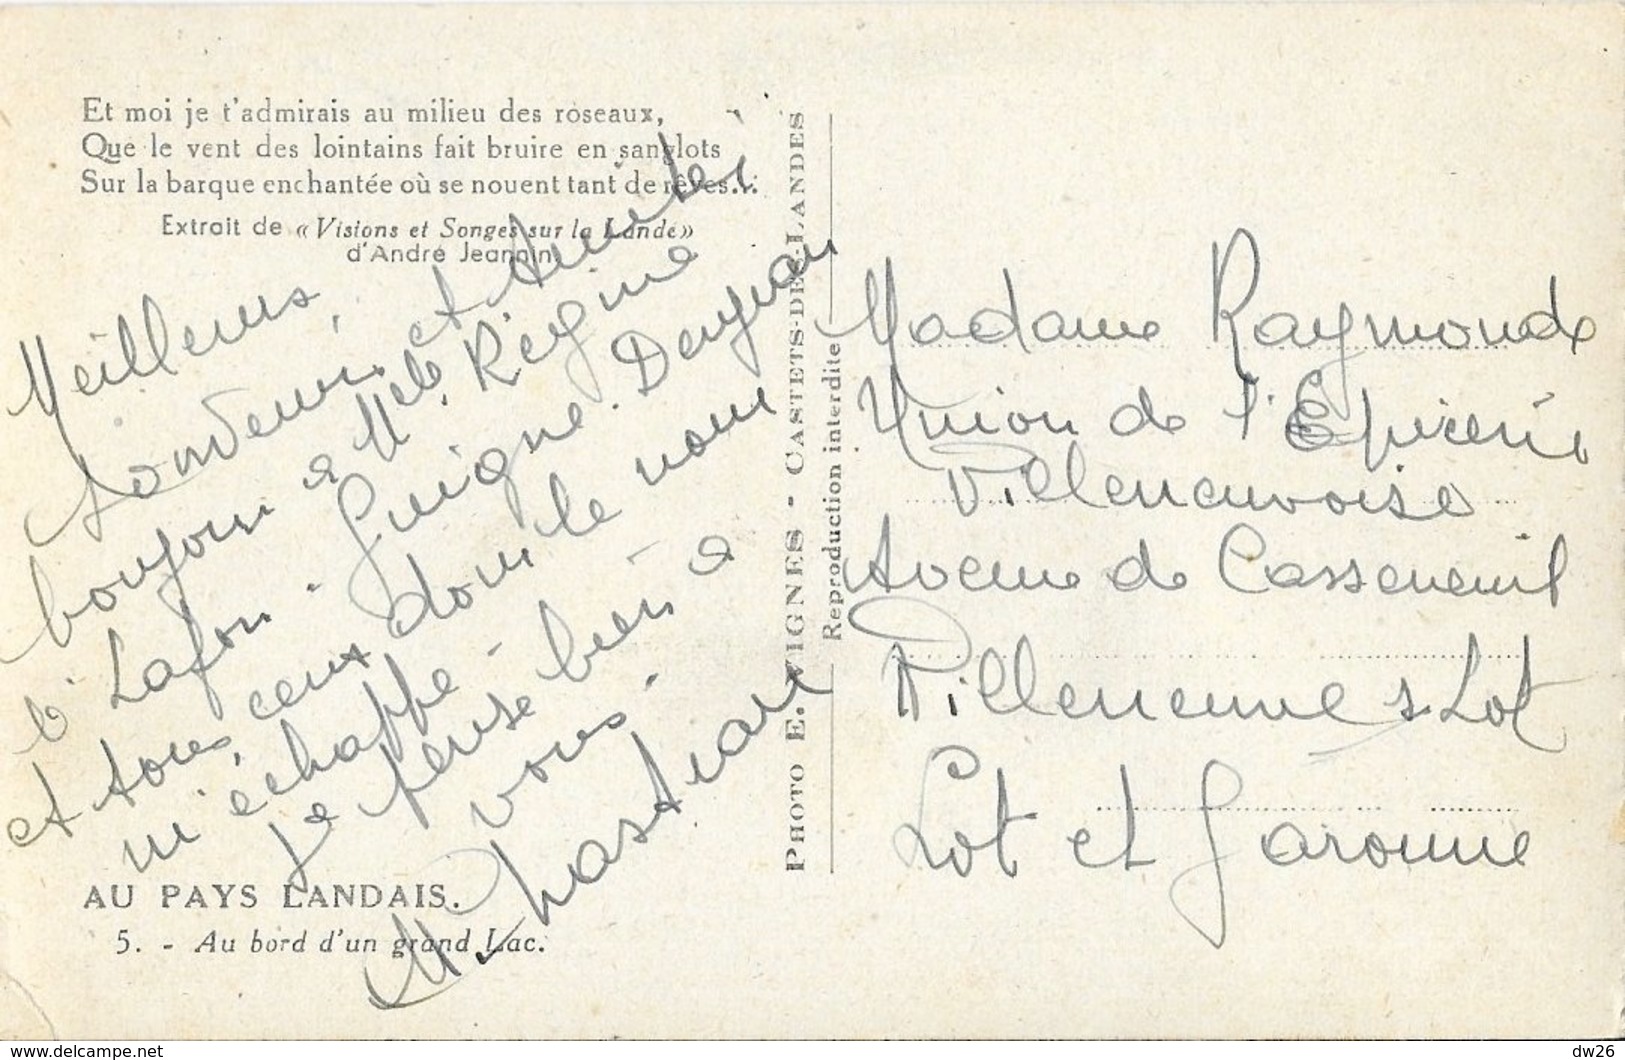 Et moi je t'admirais au milieu des roseaux,
Que le vent des lointains fait bruire en sanglots
Sur la barque enchantée où se nouent tant de rêves...
Extrait de « Visions et Songes sur la Lande »
d'André Jeannin
Meilleurs
souvenirs et Amitiés
bonjour à Melle Régine
Lafon - Guigne - 
et tous ceux dont le nom
m'échappe -
Je pense bien à
vous.
M. Chastran
AU PAYS LANDAIS.
5. - Au bord d'un grand Lac.
PHOTO E. VIGNES - CASTETS-DES-LANDES
Reproduction interdite
Madame Raymonde
Union de l'Epicerie
Villeneuvoise
Avenue de Casseneuil
Villeneuve s Lot
Lot et Garonne
www.delcampe.net
dw26